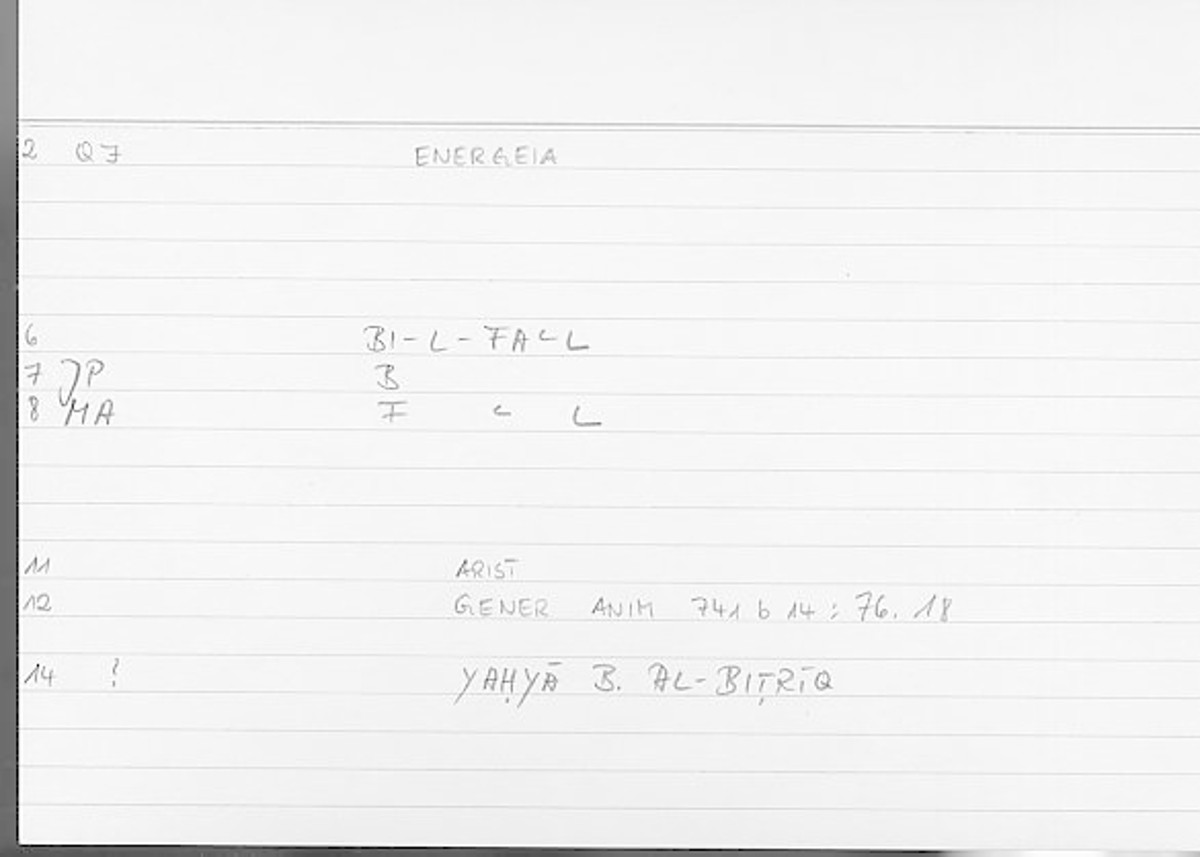 2 Q7 ENERGEIA
6 BI-L-FAʿL
7 JP B
8 MA F ʿ L
11 ARIST
12 GENER ANIM 741 b 14 : 76. 18
14 ? YAḤYĀ B. AL-BIṬRĪQ